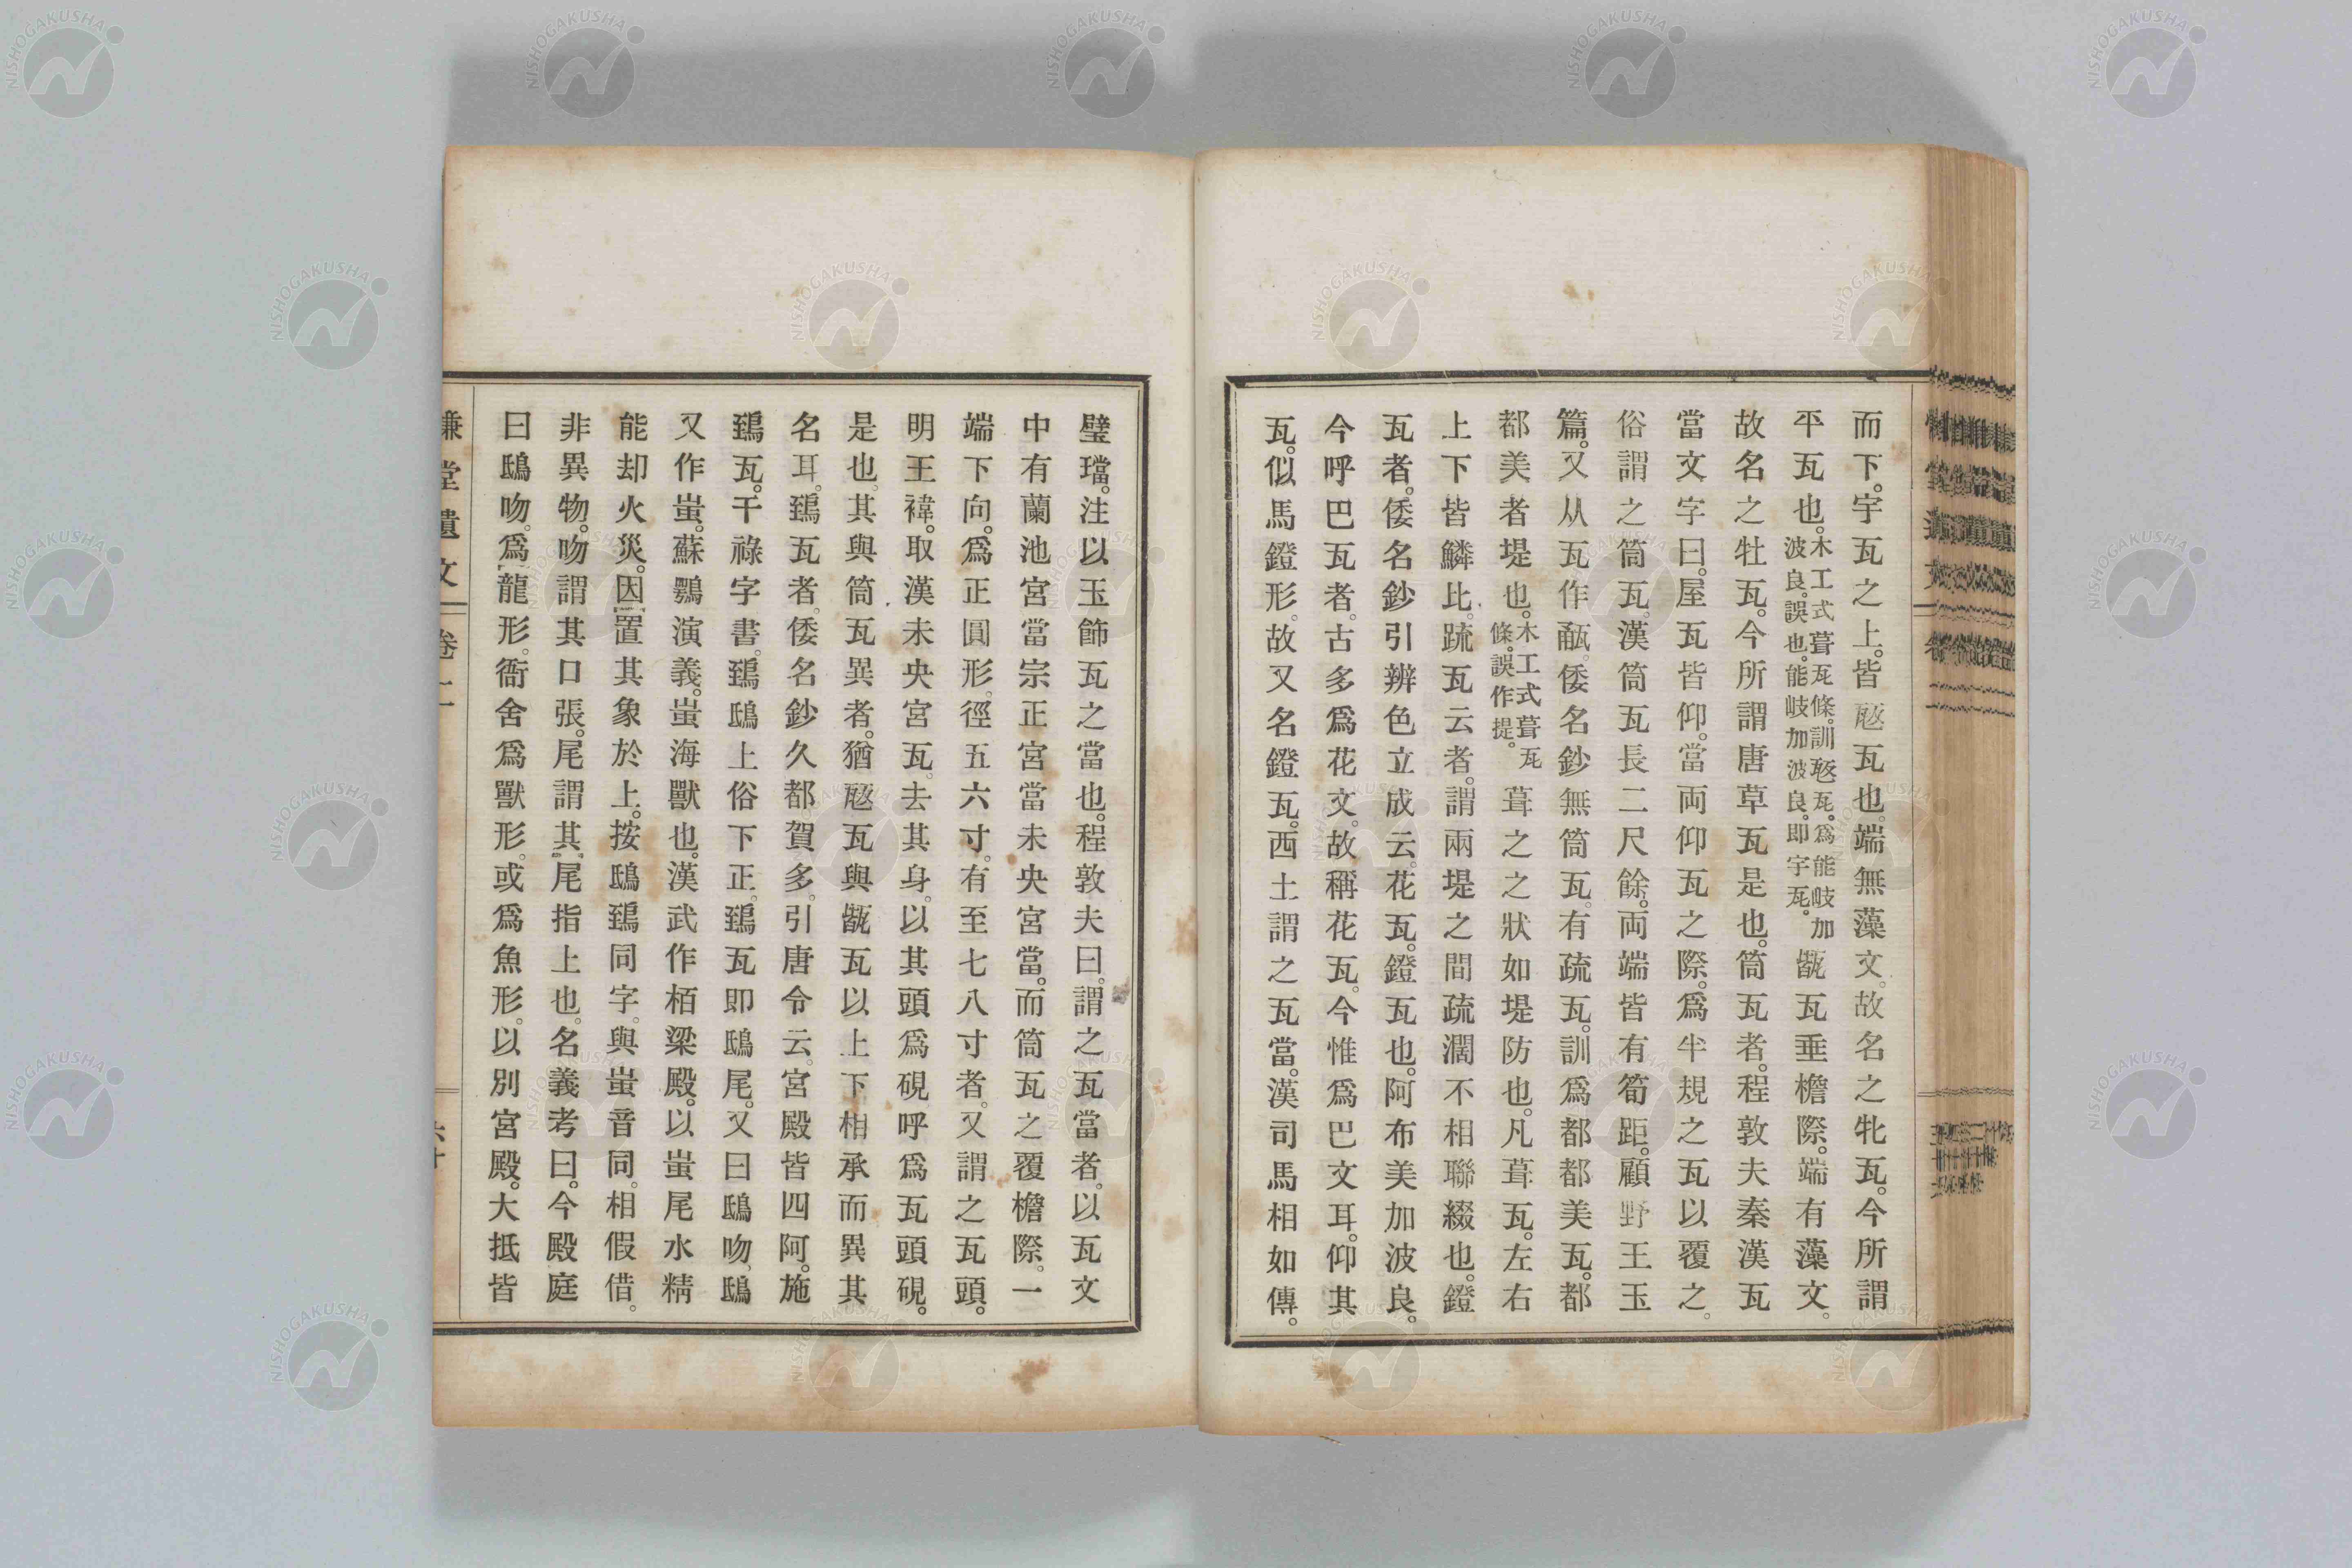 而下。宇瓦之上。皆瓪瓦也。端無藻文。故名之牝瓦。今所謂
平瓦也。木工式葺瓦條。訓瓪瓦。爲能岐加波良。誤也。能岐加波良。即宇瓦。㼾瓦垂檐際。端有藻文。
故名之牡瓦。今所謂唐草瓦是也。筒瓦者。程敦夫秦漢瓦
當文字曰。屋瓦皆仰。當両仰瓦之際。爲半規之瓦以覆之。
俗謂之筒瓦。漢筒瓦長二尺餘。両端皆有筍距。顧野王玉
篇。又从瓦作㼧。倭名鈔無筒瓦。有疏瓦。訓爲都都美瓦。都
都美者堤也。木工式葺瓦條。誤作提。葺之之狀如堤防也。凡葺瓦。左右
上下皆鱗比。疏瓦云者。謂兩堤之間疏濶不相聯綴也。鐙
瓦者。倭名鈔引辨色立成云。花瓦。鐙瓦也。阿布美加波良。
今呼巴瓦者。古多爲花文。故稱花瓦。今惟爲巴文耳。仰其
瓦。似馬鐙形。故又名鐙瓦。西土謂之瓦當。漢司馬相如傳。
璧璫。注以玉飾瓦之當也。程敦夫曰。謂之瓦當者。以瓦文
中有蘭池宮當宗正宮當未央宮當。而筒瓦之覆檐際。一
端下向。爲正圓形。徑五六寸。有至七八寸者。又謂之瓦頭。
明王褘。取漢未央宮瓦。去其身。以其頭爲硯呼爲瓦頭硯。
是也。其與筒瓦異者。猶瓪瓦與㼾瓦以上下相承而異其
名耳。鵄瓦者。倭名鈔久都賀多。引唐令云。宮殿皆四阿。施
鵄瓦。干祿字書。鵄鴟上俗下正。鵄瓦即鴟尾。又曰鴟吻、鴟
又作蚩。蘇鶚演義。蚩海獸也。漢武作栢梁殿。以蚩尾水精
能却火災。因置其象於上。按鴟鵄同字。與蚩音同。相假借。
非異物。吻謂其口張。尾謂其尾指上也。名義考曰。今殿庭
曰鴟吻。爲龍形。衙舍爲獸形。或爲魚形。以別宮殿。大抵皆
慊堂遺文 卷二